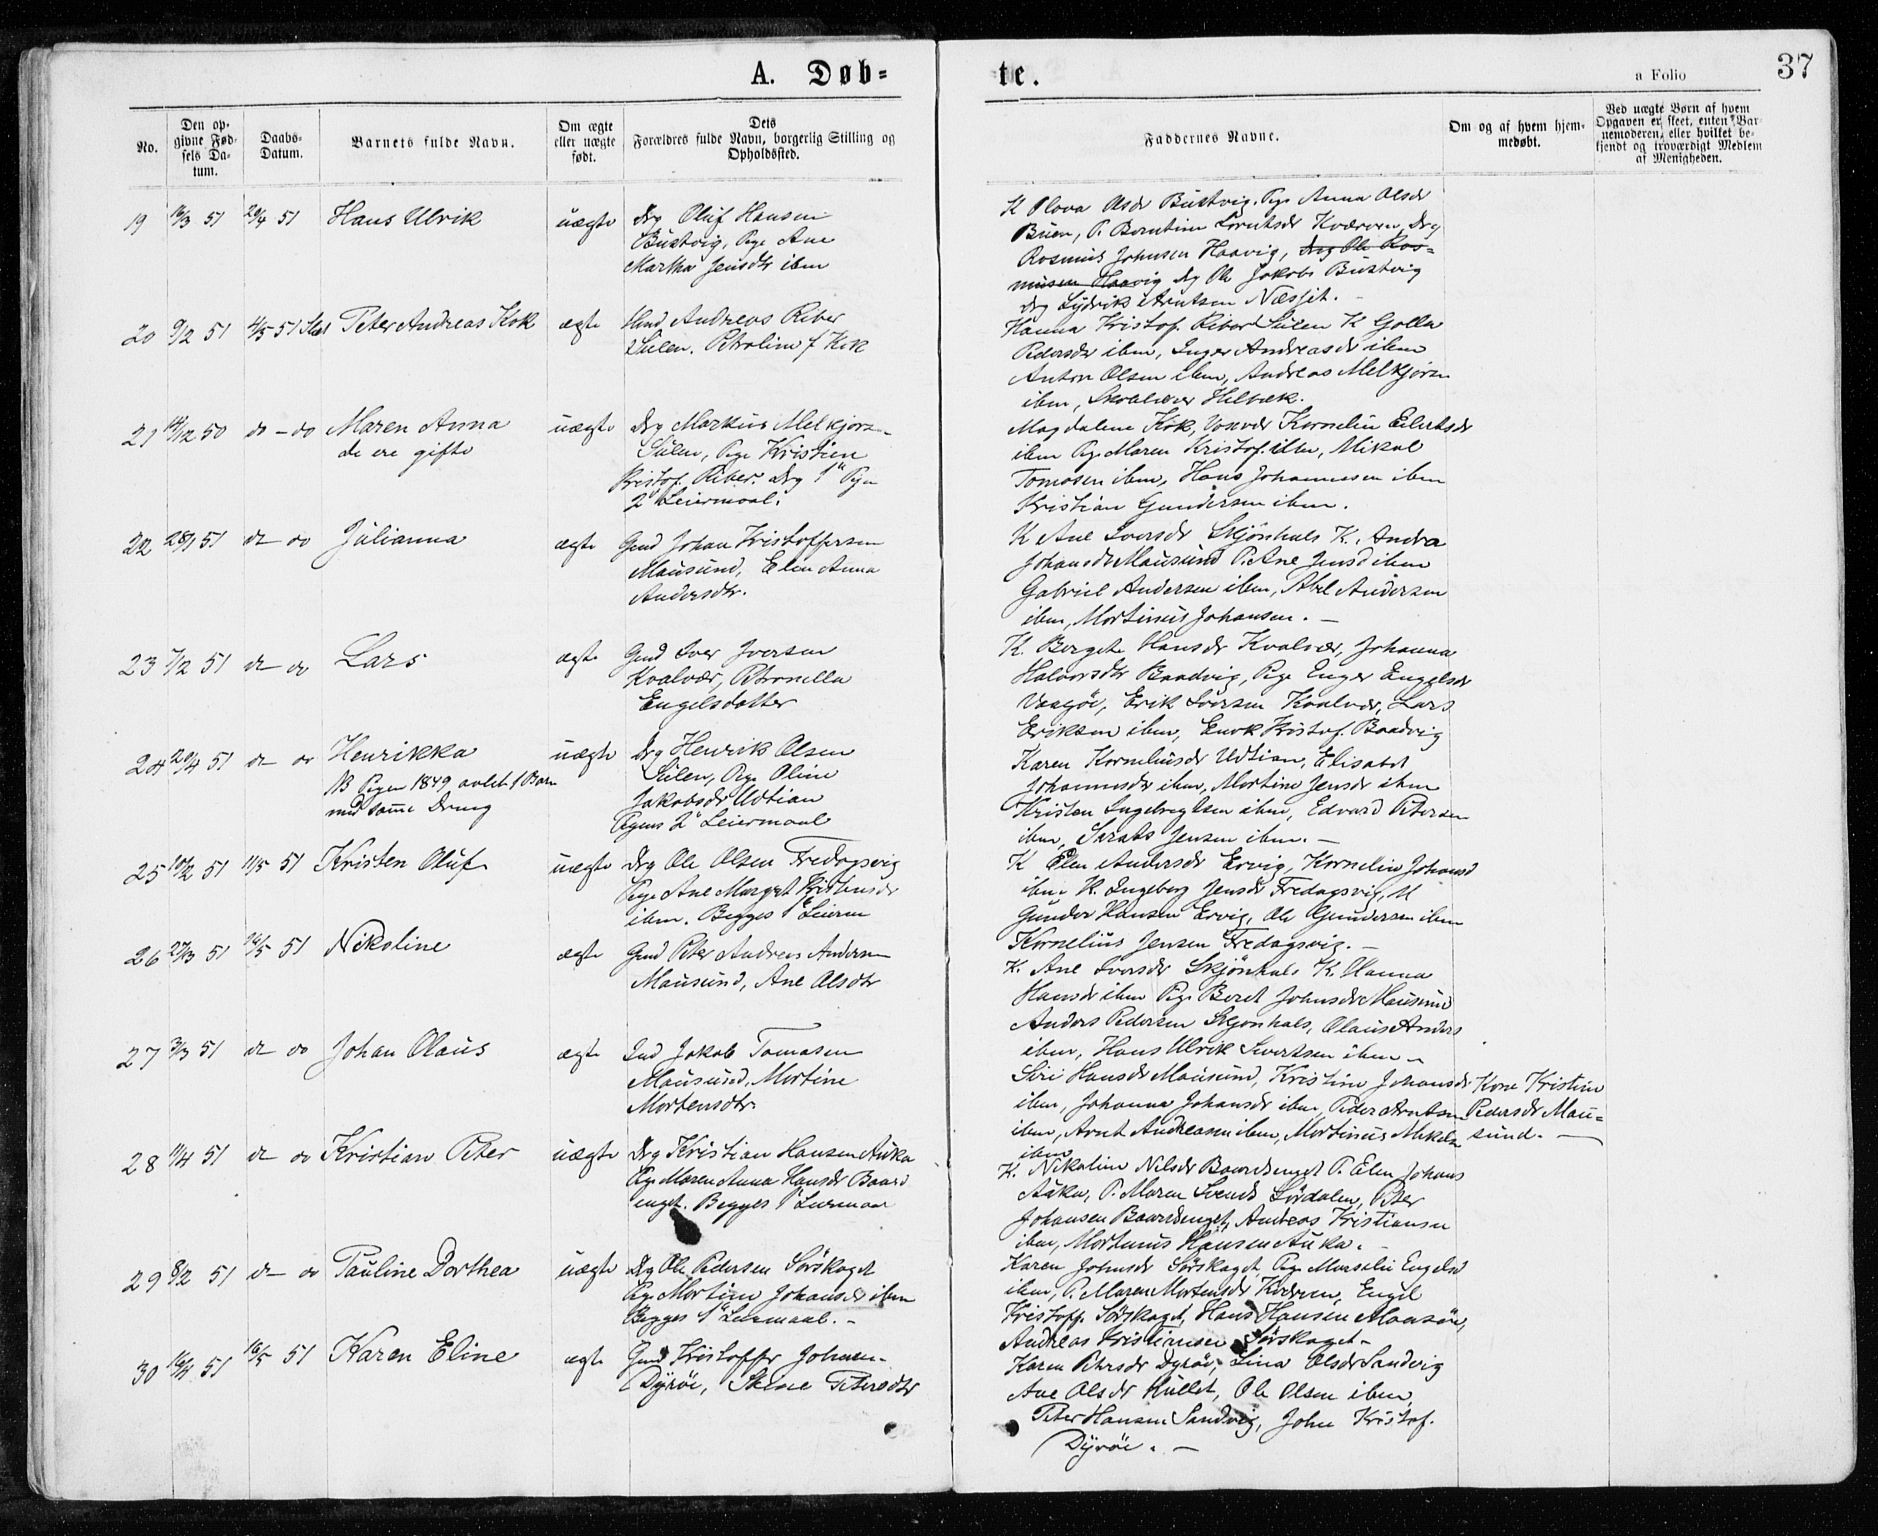 A. Døb=
te.
a Folio
37
No.
Den op-
givne Fød-
sels Da-
tum.
Daabs-
Datum.
Barnets fulde Navn.
Om ægte
eller uægte
født.
Dets
Forældres fulde Navn, borgerlig Stilling og
Opholdssted.
Faddernes Navne.
Om og af hvem hjem-
medøbt.
Ved uægte Børn af hvem
Opgaven er skeet, enten Bar-
nemoderen, eller hvilket be-
kjendt og troværdigt Medlem
af Menigheden.
19 16/3 51 20/4 51 Hans Ulrik uægte Drg Oluf Hansen
Bustvig, Pge Ane
Martha Jensdtr ibm
K Olova Olsdr Bustvig, Pge Anna Olsdr
Buen, P. Berntine Lorntsdr Kværven, Drg
Rosinus Johnsen Haavig, Drg Ole Ros=
musen Haavig Drg Ole Jakobs Bustvig
Drg Lydrik Arntsen Næsset.
20 9/2 51 4/5 51 Peter Andreas Kok ægte Hmd Andreas Riber
Sulen. Petroline f Kok
Hanna Kristof. Riber Sulen K Golla
Pedersdr ibm, Inger Andreasdr ibm
Anton Olsen ibm, Andreas Melkjørsn
ibm, Hilbek.
21 14/12 50 do - do Maren Anna uægte Drg Markus Melkjørs-
de ere gifte
Sulen, Pge Kristien
Kristof. Riber. Drg 1" Pgn
2" Leiermaal.
Magdalene Kok, Kornelia Eilertsdr
ibm Pge Maren Kristof. ibm, Mikal
Tomasen ibm, Hans Johannesen ibm
Kristian Gundersen ibm.
22 28/1 51 do do Julianna ægte Gmd Johan Kristoffersen
Mausund, Elen Anna
Andersdtr.
K Ane Iversdr Skjönhals K. Andrea
Johansdr Mausund P. Ane Jensd ibm
Gabriel Andersen ibm, Abel Andersen
ibm, Mortinus Johansen. -
23 7/2 51 do do Lars ægte Gmd Iver Iversen
Kvalvær, Petronella
Engelsdatter
K. Bergete Hansdr Kvalvær, Johanna
Halvorsdtr Baadvig, Pge Enger Engelsdr
Vaagöe, Erik Iversen Kvalvær, Lars
Eriksen ibm, Enok Kristof. Baadvig
24 20/4 51 do do Henrikka uægte Drg Henrik Olsen
NB Pigen 1849 avlet 1 Barn
med samme Dreng
Sulen, Pge Oline
Jakobsdr Udtian
Pigens 2" Leiermaal
Karen Korneliusdr Udtian, Elisabet
Johannesdr ibm, Martine Jensdr ibm
Kristen Ingebregtsen ibm, Edvard Petersen
ibm, Jensen ibm. -
25 10/2 51 11/5 51 Kristen Oluf uægte Drg Ole Olsen Fredagsvig
Pge Ane Margret Kristensdr
ibm. Begges 1" Leierm
K Elen Andersdr Ervig, Kornelia Johansd
ibm K. Ingeborg Jensdr Fredagsvig, U
Gunder Hansen Ervig, Ole Gundersen ibm
Kornelius Jensen Fredagsvig. -
26 27/3 51 16/5 51 Nikoline ægte Gmd Peter Andreas Andersen
Mausund, Ane Olsdtr
K. Ane Iversdr Skjönhals K. Hanna
Hansdr ibm Pge Beret Johnsdr Mausund
Anders Pedersen Skjönhals, Olaus Anders
ibm, Hans Ulrik Sivertsen ibm -
27 3/3 51 do do Johan Olaus ægte Ind Jakob Tomasen
Mausund, Martine
Mortensdtr
Siri Hansdr Mausund, Kristine Johansdr
ibm, Johanna Johansdr ibm, Peder Arntsen
ibm, Arnt Andreasen ibm, Mortinus Mikals
ibm
Kone Kristine
Pedersdr Mau=
sund. -
28 11/4 51 do do Kristian Peter uægte Drg Kristian Hansen Auka
Pge Maren Anna Hansdr Baard
enget. Begges 1" Leiermaal
K. Nikoline Nilsdr Baardsenget P. Elen Johans
Auka, P. Maren Svends Sördalen, Peter
Johansen Baardsenget, Andreas Kristiansen
ibm, Mortinus Hansen Auka.
29 8/2 51 do do Pauline Dorthea uægte Drg Ole Pedersen Sörskaget
Pge Martine Johansdr ibm
Begges 1" Leiermaal. -
Karen Johnsdr Sörskaget, Pge Marselie Engelsd
ibm, P. Maren Mortensdr Kværven, Engel
Kristoff. Sörskaget, Hans Hansen Maasöe,
Andreas Kristiansen Sörskaget -
30 16/4 51 16/5 51 Karen Eline ægte Gmd Kristoffer Johnsen
Dyröe, Stine Petersdtr
Karen Petersdr Dyröe, Lina Olsdr Sandvig
Ane Olsdr Hullet, Ole Olsen ibm,
Peter Hansen Sandvig, John Kristof.
Dyröe. -